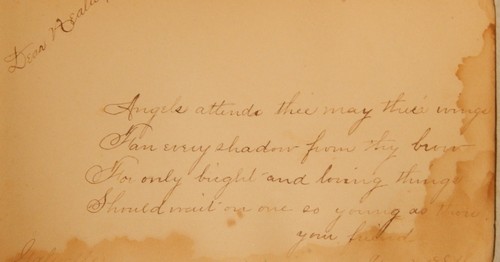 Dear
Angels attend thee may their wings
Fan every shadow from thy brow
For only bright and loving things
Should wait on one so young as thou
your friend